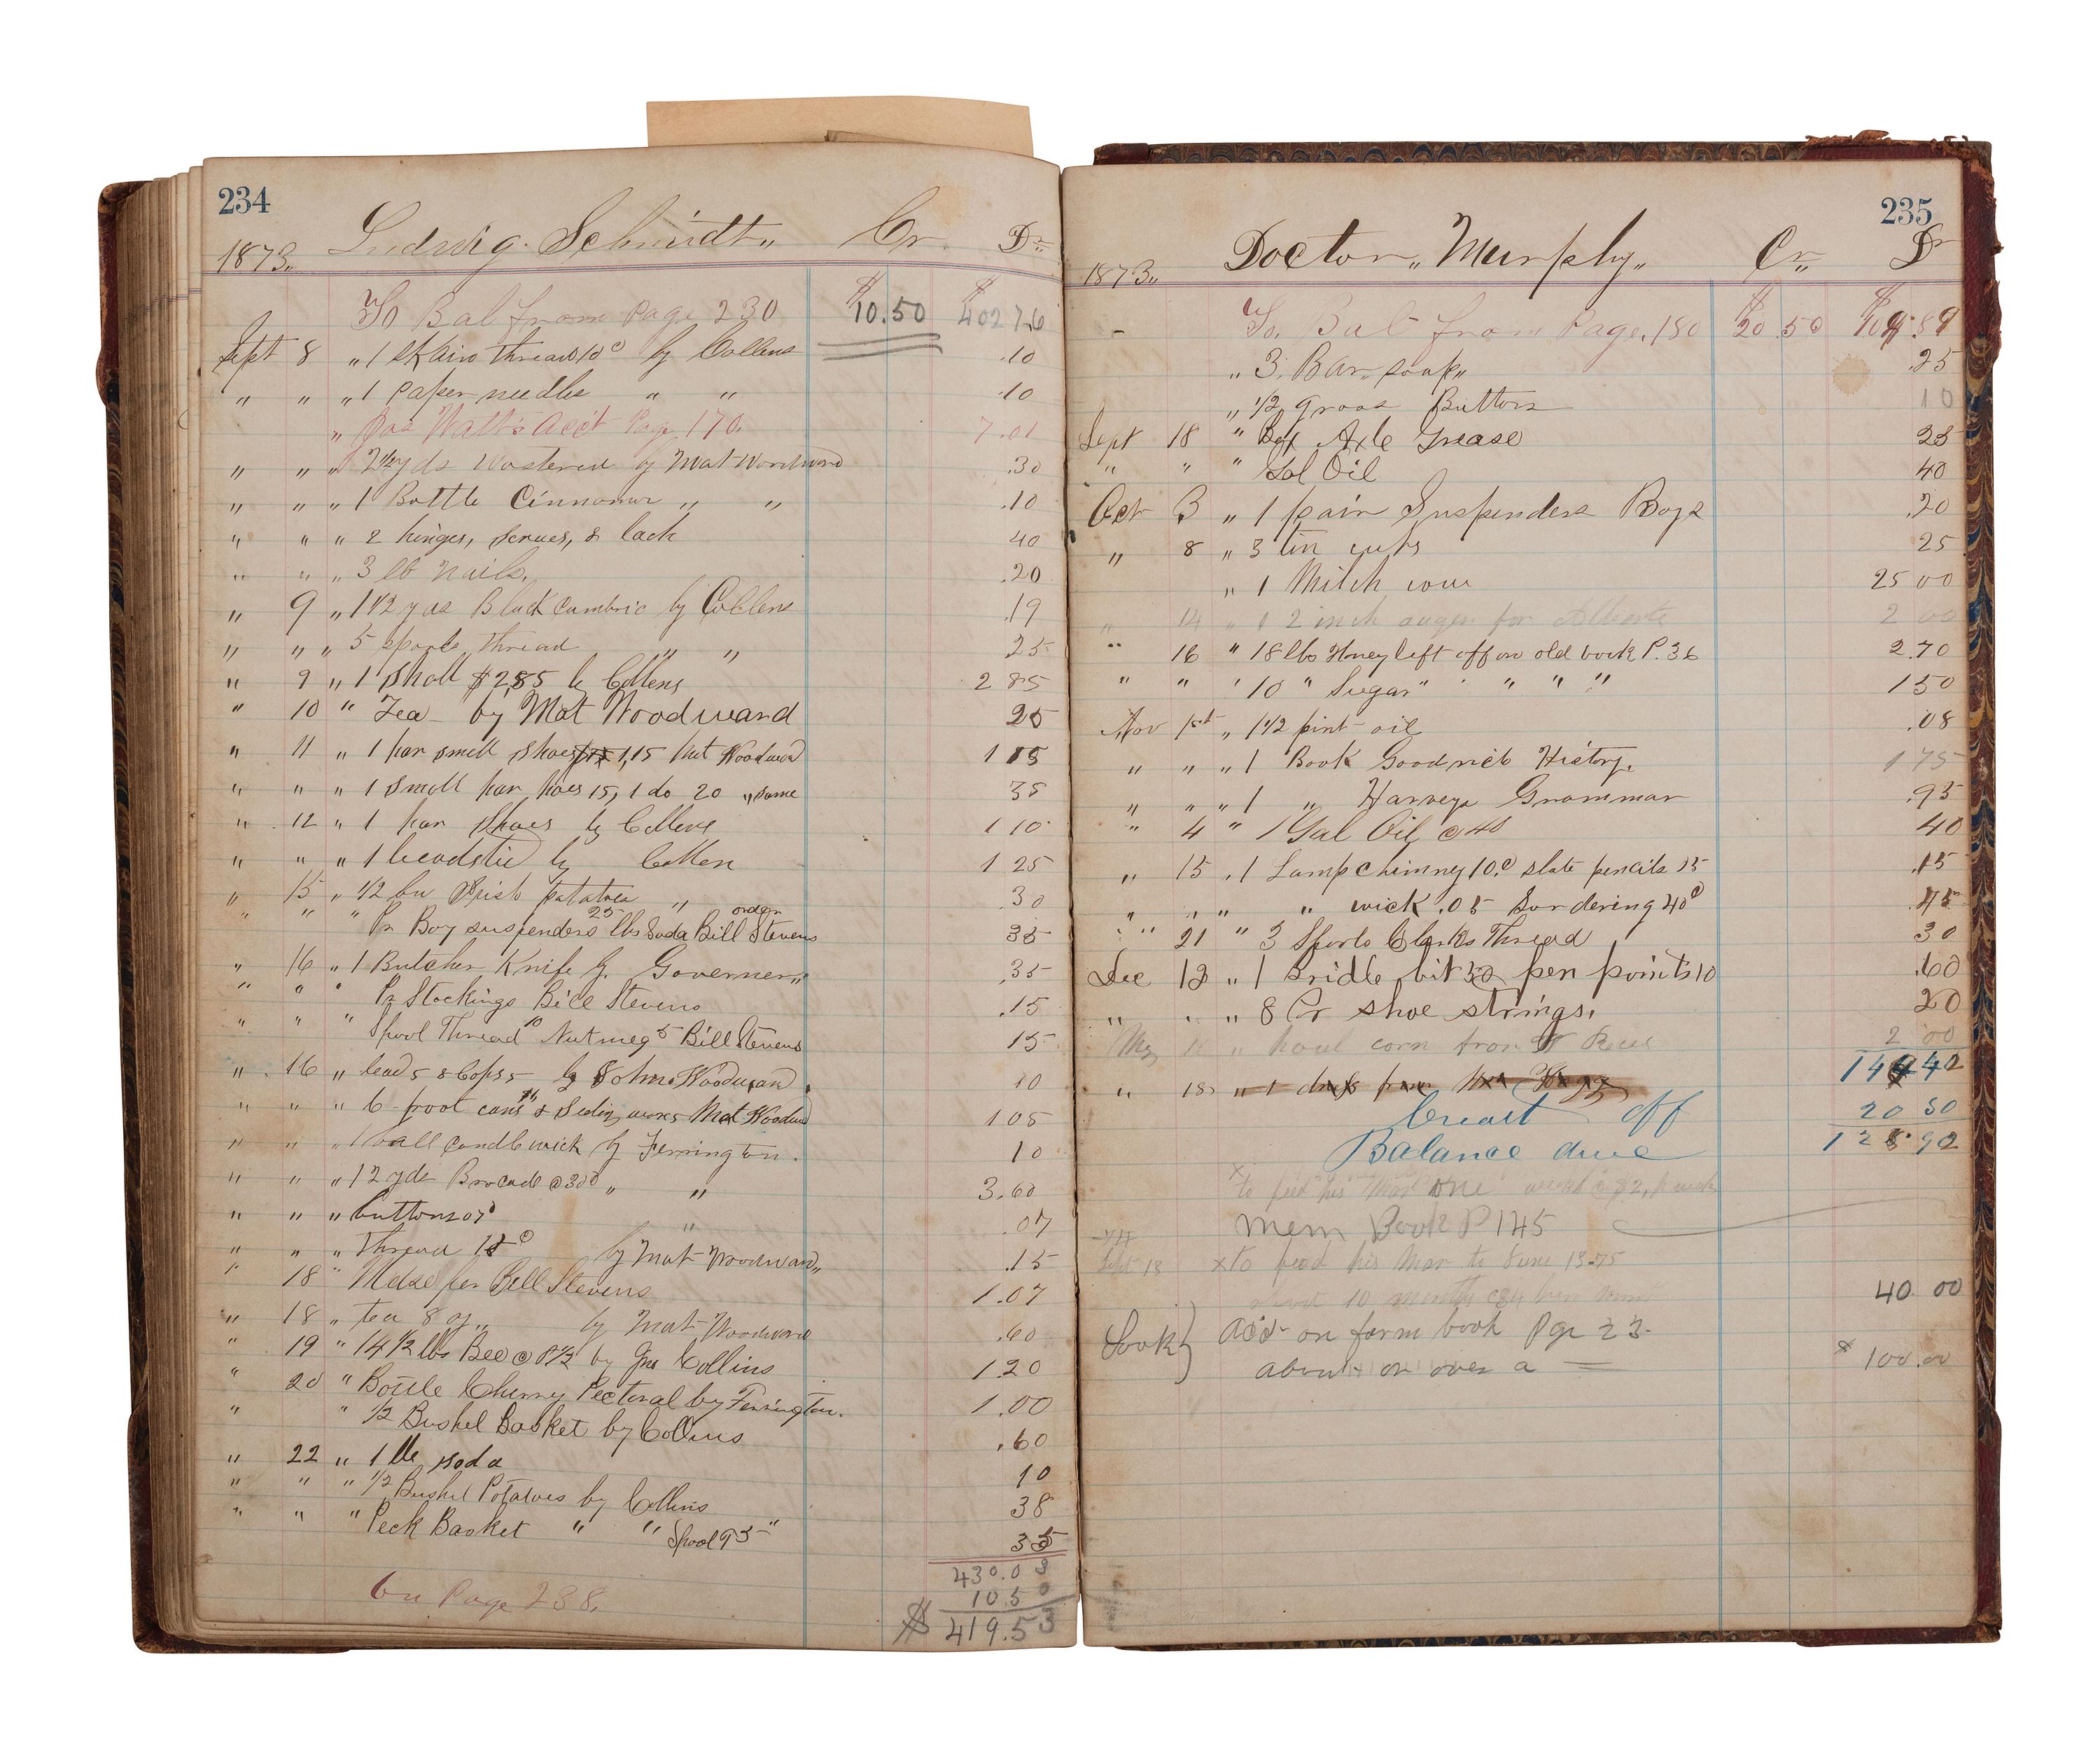 234
1873 Ludwig Schmidt Cr Dr
To Bal from Page 230 $10.50 $402 76
Sept 8 " 1 skain thread 10c by Collens .10
" " " 1 paper needles " " .10
" Jas Watts acct Page 170. 7.01
" " " 2 1/2 yds by Mat Woodward .30
" " " 1 Bottle Cinnamon " " .10
" " " 2 hinges, scrues, & lock 40
" " " 3 lb nails. .20
" 9 " 1 1/2 yds Black Cambric by Collens .19
" " " 5 spools thread " " 25
" 9 " 1 Shall $2.85 by Collens 2 85
" 10 " Tea by Mat Woodward 25
" 11 " 1 par small shoes 1,15 Mat Woodward 1 15
" " " 1 small par hoes 15, 1 do 20 " same 35
" 12 " 1 par Shoes by Collens 1 10
" " " 1 beadstid by Collen 1 25
" 15 " 1/2 bu Irish potatoes " .30
" " " Pr Boy suspenders 25 lbs Soda Bill Stevens order 35
" 16 " 1 Butcher Knife by Governer " .35
" " " Pr Stockings Bill Stevens .15
" " " Spool Thread 10 Nutmeg 5 Bill Stevens 15
" 16 " lead 5 & Cops 5 by John Woodward . 10
" " " 6 froot cans & Mat Woodward 1 05
" " " 1 ball candlewick by Ferrington. 10
" " " 12 yds Brocade @ 30c " " 3.60
" " " buttons 07c " .07
" " " Thread 15c by Mat Woodward " .15
" 18 " Mdse per Bill Stevens 1.07
" 18 " tea 8 oz " by Mat Woodward .60
" 19 " 14 1/2 lbs Bee @ 8 1/2 by Jno Collins 1 20
" 20 " Bottle Cherry Pectoral by Ferrington. 1.00
" " 1/2 Bushel Basket by Collins .60
" 22 " 1 lb soda 10
" " " 1/2 Bushel Potatoes by Collins 38
" " " Peck Basket " " Spool 95 " 35
430.03
10 50
On Page 238. $ 419.53
235
1873 " Doctor " Murphy " Cr " Dr
To. Bal from Page. 180 $20.50 $104.89
" 3 Bar soap " .25
" 1/2 gross Buttons 10
Sept 18 " Box Axle Grease 25
" " " Gal Oil 40
Oct 3 " 1 pair Suspenders Boys .20
" 8 " 3 tin cups 25
" 1 Milch cow 25 00
" 14 " 1 2 inch auger for Alberta 2 00
" 16 " 18 lbs Honey left off on old book P. 36 2.70
" " " 10 " Sugar " " " " 1 50
Nov 1st " 1 1/2 pint oil .08
" " " 1 Book Goodrich History. 1 75
" " " 1 " Harveys Grammar .95
" 4 " 1 Gal Oil @ 40 40
" 15 " 1 Lamp Chimney 10c slate pencils 15 .15
" " " " wick .05 Sordering 40c .45
" 21 " 3 Spools Clarks Thread 30
Dec 12 " 1 Bridle bit 50 pen points 10 .60
" " " 8 Pr shoe strings. 20
" haul corn from 2 00
" 18 " 144 42
Creait off 20 50
Balance due 123 92
x to feed his Mar one week @ $2, p week
Mem Book P 145
Sept 13 x to feed his Mar to June 13 - 75
10 months @ $4 40 00
Look } acct on farm book Pge 23.
about or over a = $ 100.00